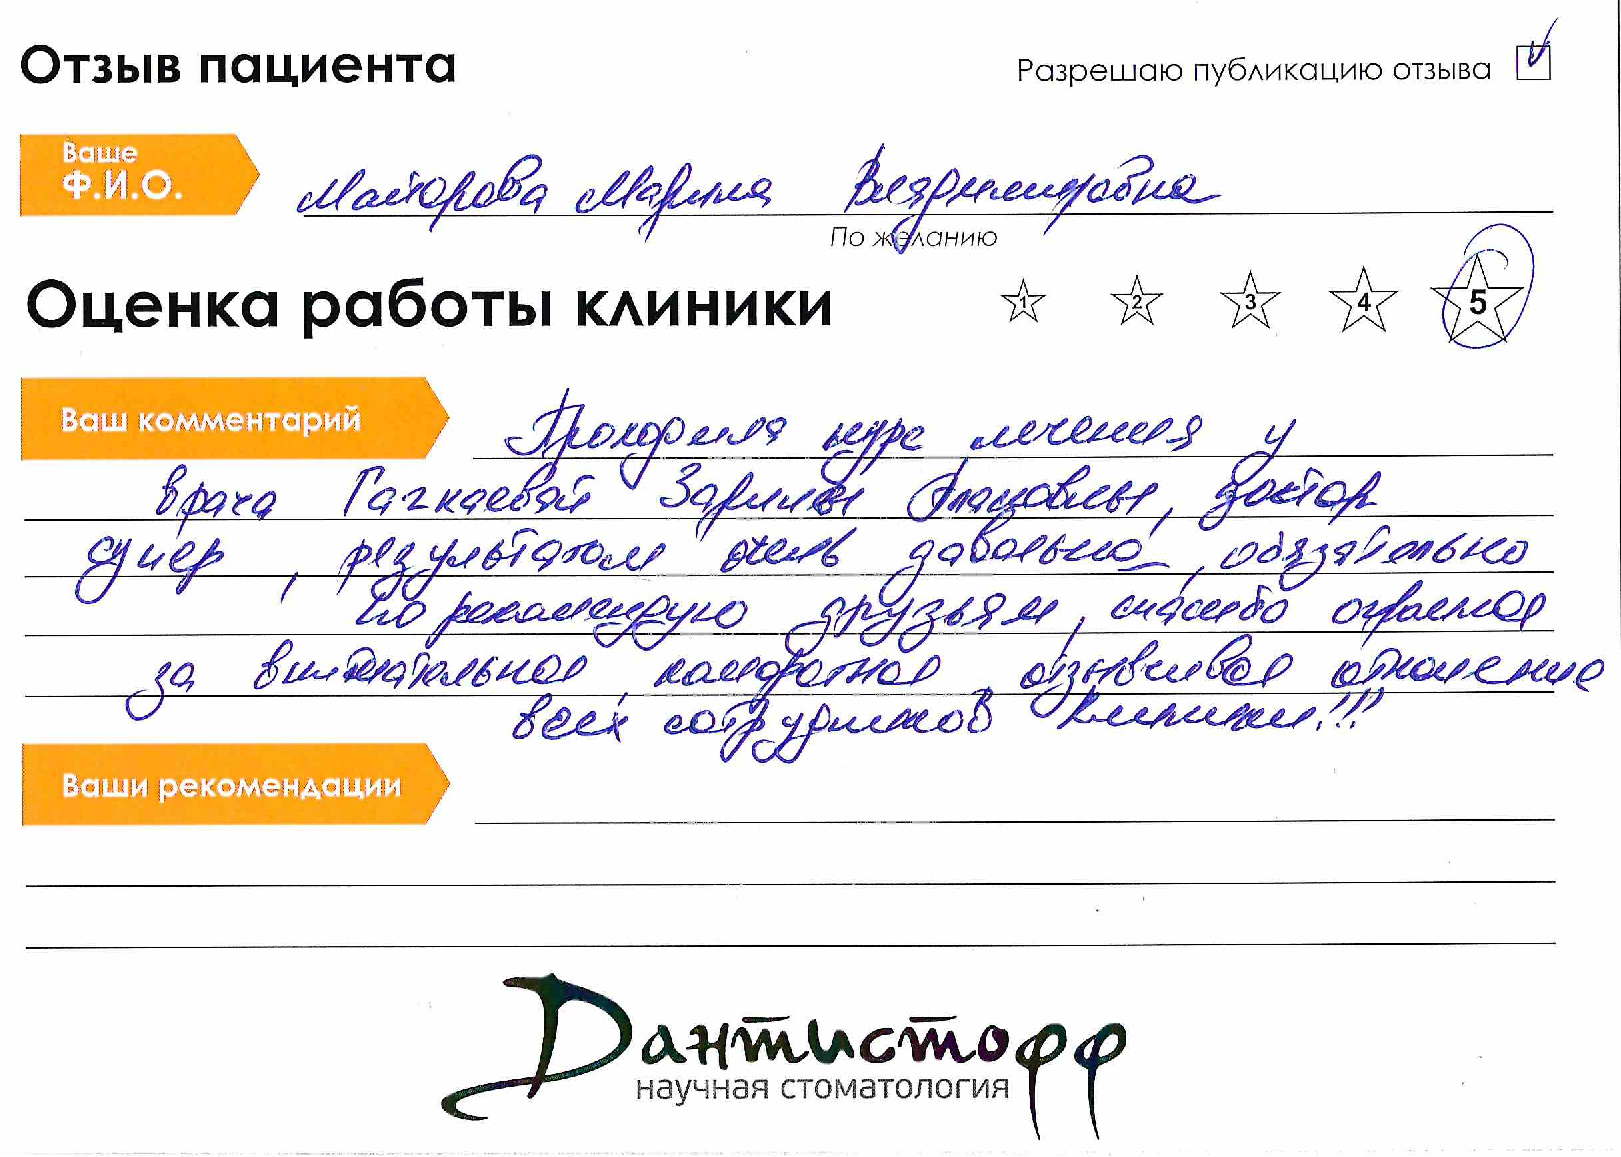 Отзыв пациента
Разрешаю публикацию отзыва
Ваше
Ф.И.О.
Майорова Марина Владимировна
По желанию
Оценка работы клиники
1 2 3 4 5
Ваш комментарий
Проходила курс лечения у
врача Гагкаевой Зарины Олеговны, доктор
супер, результатом очень довольна, обязательно
порекомендую друзьям, спасибо огромное
за внимательное, комфортное, отзывчивое отношение
всех сотрудников клиники!!!
Ваши рекомендации
Дантистофф
научная стоматология